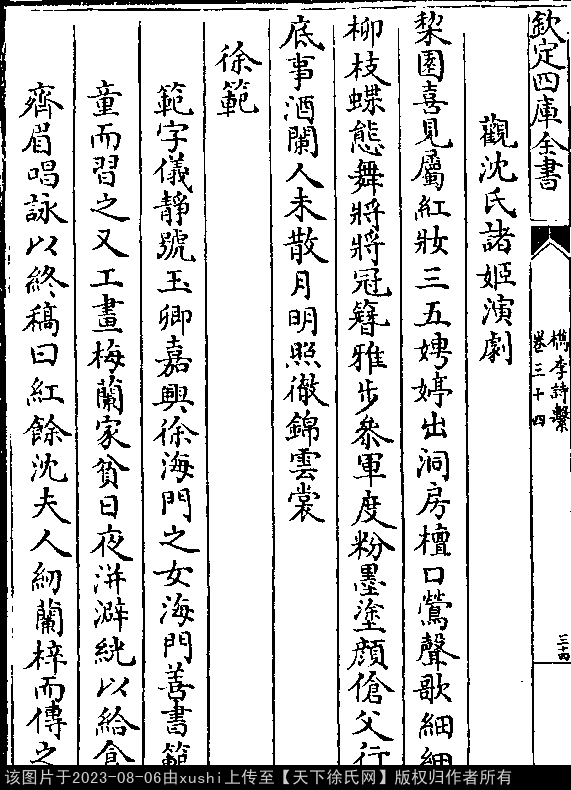 欽定四庫全書
檇李詩繫
卷三十四
三十四
觀沈氏諸姬演劇
棃園喜見屬紅妝三五娉婷出洞房檀口鶯聲歌細細
柳枝蝶態舞將將冠簪雅步叅軍度粉墨塗顔傖父行
底事酒闌人未散月明照徹錦雲裳
徐範
範字儀靜號玉卿嘉興徐海門之女海門善書範
童而習之又工畫梅蘭家貧日夜洴澼絖以給食
齊眉唱詠以終稿曰紅餘沈夫人紉蘭梓而傳之
该图片于2023-08-06由xushi上传至【天下徐氏网】版权归作者所有